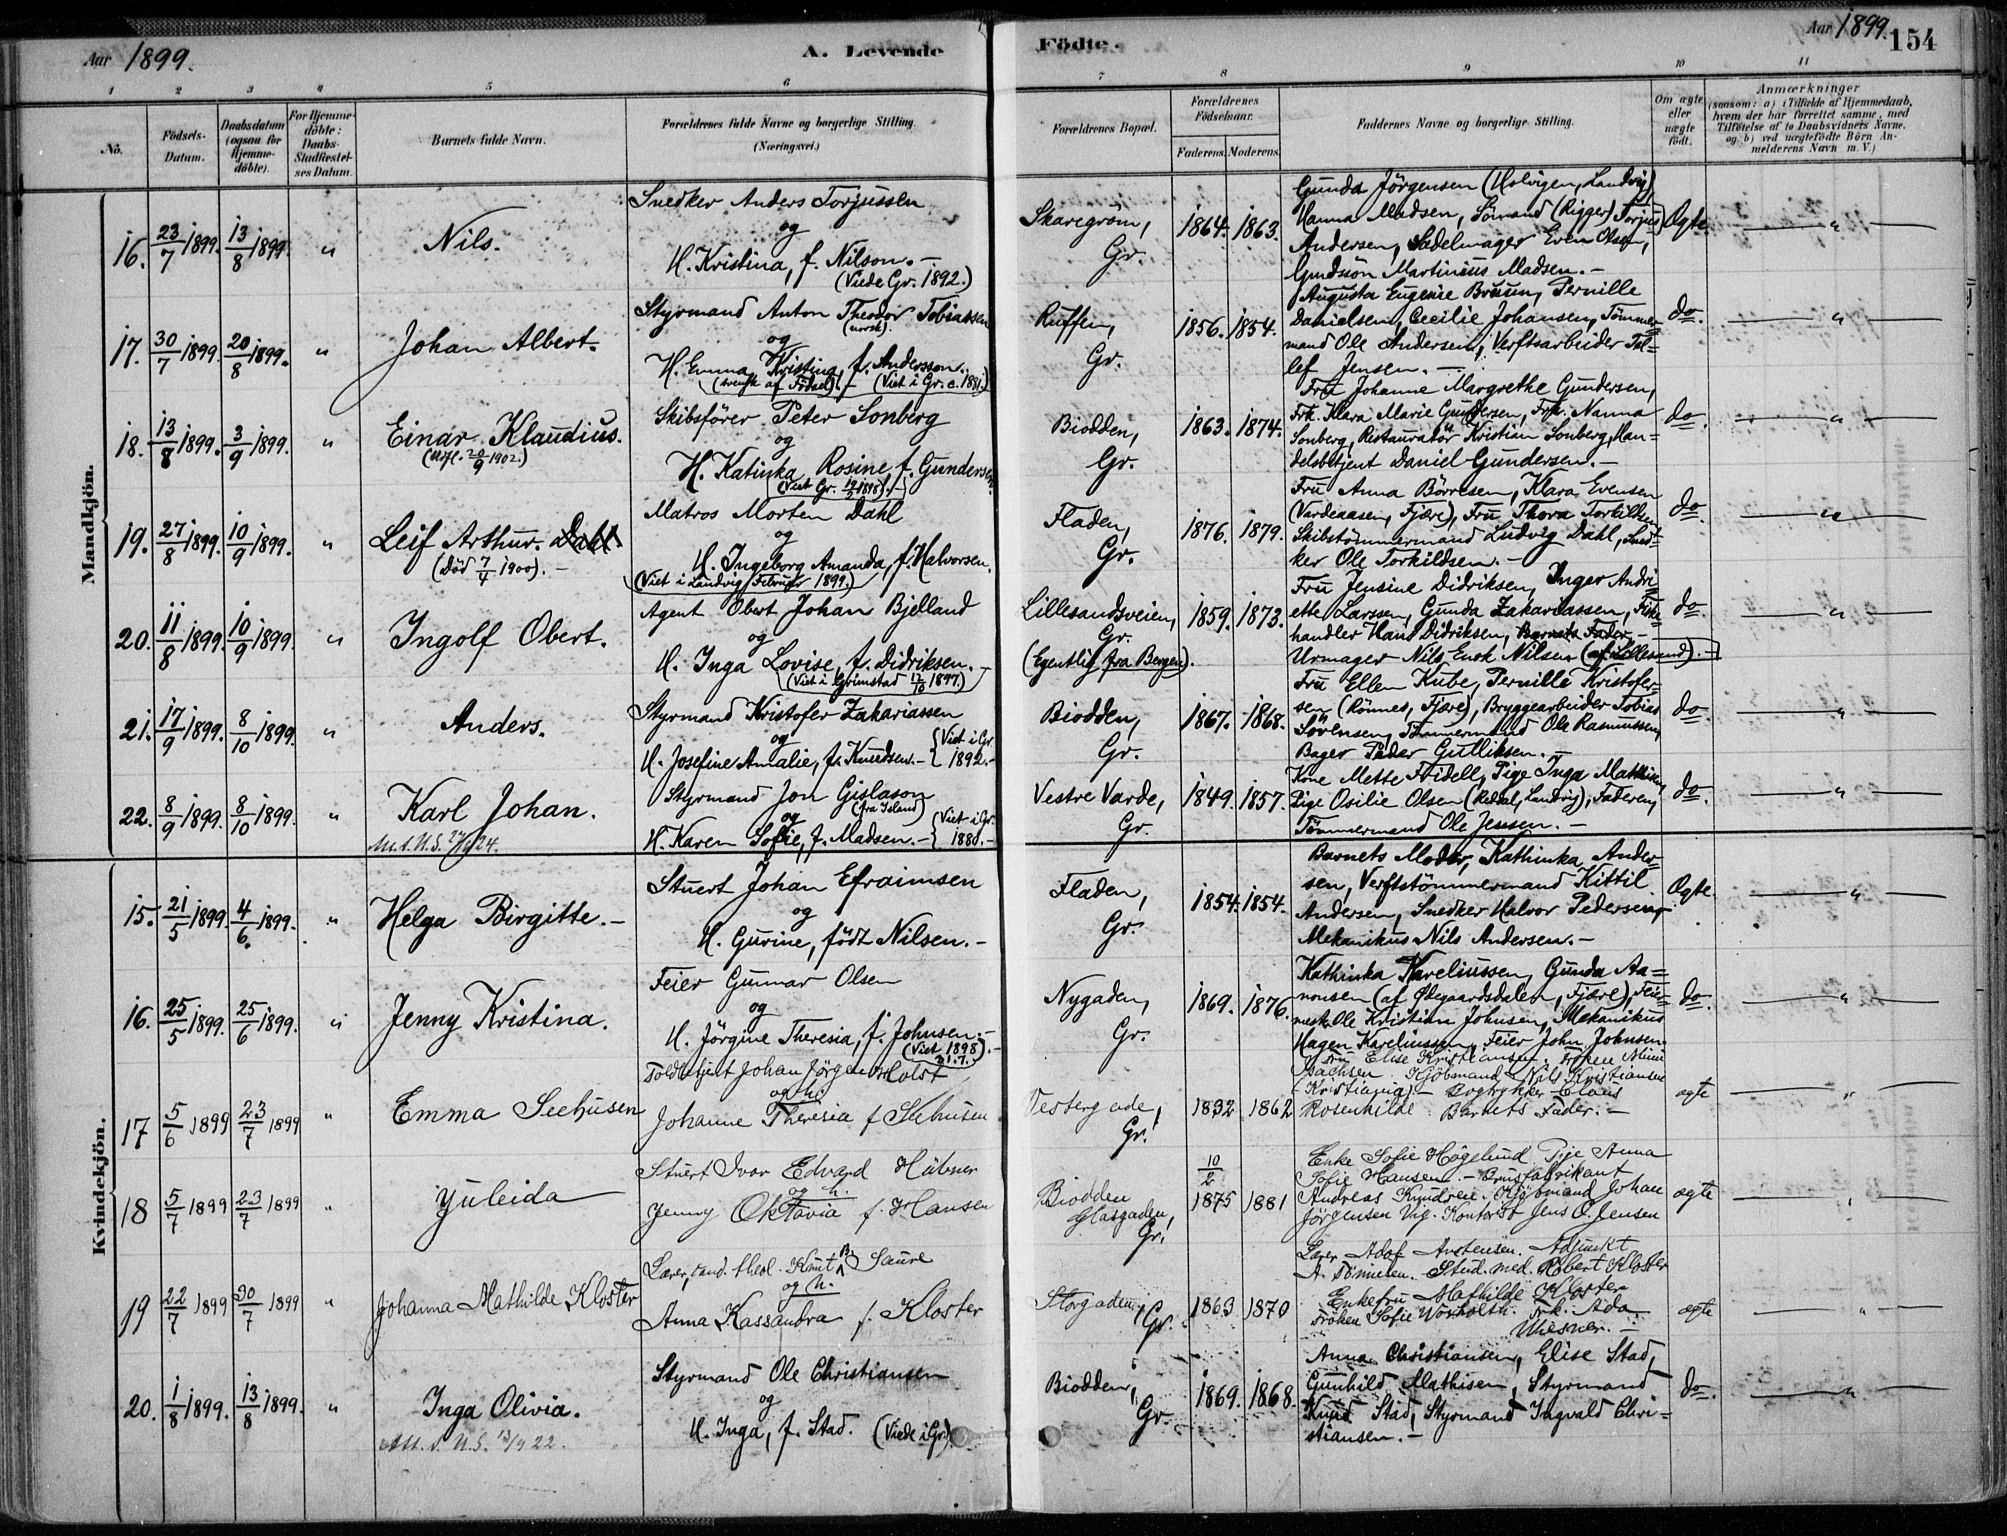 Aar 1899.
A. Levende
Födte.
Aar 1899.
154
1 2 3 4 5 6 7 8 9 10 11
No.
Födsels-
Datum.
Daabsdatum
(ogsaa for
Hjemme-
døbte).
For Hjemme-
døbte:
Daabs-
Stadfæstel-
ses Datum.
Barnets fulde Navn.
Forældrenes fulde Navne og borgerlige Stilling
(Næringsvei.)
Forældrenes Bopæl.
Forældrenes
Födselsaar.
Faderens. Moderens.
Faddernes Navne og borgerlige Stilling.
Om ægte
eller
uægte
født.
Anmærkninger
(saasom: a) i Tilfælde af Hjemmedaab,
hvem der har forrettet samme, med
Tilføielse af to Daabsvidners Navne.
og b) ved uægtefødte Börn An-
melderens Navn m. V.)
Mandkjön.
16. 23/7 1899. 13/8 1899. " Nils.
Snedker Anders Torjussen
og
H. Kristina, f. Nilson. -
(Viede Gr. 1892.)
Skaregrøm,
Gr.
1864. 1863.
Gunda Jörgensen (Holvigen, Landvig)
Hanna Madsen, Sömand (Rigger) Torjus
Andersen, Sadelmager Even Olsen,
Martinius Madsen. -
Ægte "
17. 30/7 1899. 20/8 1899. " Johan Albert.
Styrmand Anton Theodor Tobiassen
(norsk).
og
H. Emma Kristina, f. Andersson.
(svensk af Födsel). - (Viet i Gr. c. 1881.)
Ruffen,
Gr.
1856. 1854.
Augusta Eugenie Bruun, Pernille
Danielsen, Cecilie Johansen, Tömmer=
mand Ole Andersen, Verftsarbeider Tel=
lef Jensen. -
do. "
18. 13/8 1899. 3/9 1899. " Einar Klaudius.
(Udfl. 20/9 1902.)
Skibsförer Peter Sonberg
og
H. Katinka Rosine f. Gundersen.
Biodden,
Gr.
1863. 1874.
Fru Johanne Margrethe Gundersen,
Frk. Klara Marie Gundersen, Frk. Nanna
Sonberg, Restauratör Kristian Sonberg, Han=
delsbetjent Daniel Gundersen. -
do. "
19. 27/8 1899. 10/9 1899. " Leif Arthur. Dahl.
(Död 7/4 1900). -
Matros Morten Dahl
og
H. Ingeborg Amanda, f. Halvorsen.
(Viet i Landvig Februar 1899.)
Fladen,
Gr.
1876. 1879.
Fru Anna Börresen, Klara Evensen
(Vardeaasen, Fjære), Fru Thora Torkildsen
Skibstömmermand Ludvig Dahl, Sned=
ker Ole Torkildsen. -
do. "
20. 11/8 1899. 10/9 1899. " Ingolf Obert.
Agent Obert Johan Bjelland
og
H. Inga Lovise, f. Didriksen. -
(Viet i Grimstad 1897.)
Lillesandsveien,
Gr.
(Egentlig fra Bergen).
1859. 1873.
Fru Jensine Didriksen, Inger Andri=
ette Larssen, Gunda Zakariassen, Fiske=
handler Hans Didriksen, Barnets Fader, -
Urmager Nils Enok Nilsen (af Lillesand). -
do. "
21. 17/9 1899. 8/10 1899. " Anders.
Styrmand Kristofer Zakariassen
og
H. Josefine Amalie, f. Knudsen. - (Viet i Gr. 1892. -
Biodden,
Gr.
1867. 1868.
Fru Ellen Kube, Pernille Kristofer=
sen (Rönnes, Fjære), Bryggearbeider Tobias
Sörensen, Tömmermand Ole Rasmussen,
Bager Peder Gulliksen. -
do. "
22. 8/9 1899. 8/10 1899. " Karl Johan.
Styrmand Jon Gislason
(fra Island)
og
H. Karen Sofie, f. Madsen. - (Viet i Gr. 1880. -
Vestre Varde,
Gr.
1849. 1857.
Kone Mette Fridell, Pige Inga Mathisen,
Pige Osilie Olsen (Reddal, Landvig), Faderen,
Tömmermand Ole Jensen. -
do. "
Kvindekjön.
15. 21/5 1899. 4/6. 1899. " Helga Birgitte. -
Stuert Johan Efraimsen
og
H. Gurine, födt Nilsen. -
Fladen,
Gr.
1854. 1854.
Barnets Moder, Kathinka Ander=
sen, Verftstömmermand Kittil
Andersen, Snedker Halvor Pedersen,
Mekanikus Nils Andersen. -
Ægte. "
16. 25/5 1899. 25/6 1899. " Jenny Kristina.
Feier Gunnar Olsen
og
H. Jörgine Theresia, f. Johnsen. -
(Viet 1898). -
31.7.
Nygaden,
Gr.
1869. 1876.
Kathinka Kareliussen, Gunda Aa=
nonsen (af Ødegaardsdalen, Fjære), Feier=
mest. Ole Kristian Johnsen, Mekanikus
Hagen Kareliussen, Feier John Johnsen.
do. "
17 5/6 1899 23/7 1899 " Emma Seehusen
Toldbetjent Johan Jörgen Holst
og h.
Johanne Theresia f Seehusen
Vestergade,
Gr.
1832 1862
Fru Elise Kristiansen. Fröken
Isachsen. Kjöbmand Nils Kristiansen
(Kristiania) - Bogtrykker Claus
Rosenkilde. Barnets Fader. -
ægte "
18 5/7 1899 23/7 1899 " Yuleida
Stuert Ivar Edvard Hübner
og h.
Jenny Oktavia f. Hansen
Biodden
Glasgaden,
Gr.
10/2 1875 1881
Enke Sofie Högelund Pige Anna
Sofie Hansen. - Brusfabrikant
Andreas Knudsen. Kjöbmand Johan
Jörgensen Vig. Kontorist Jens O. Jensen
ægte "
19 22/7 1899 30/7 1899 " Johanna Mathilde Kloster
Lærer, cand. theol. Knut B Saure
og h.
Anna Kassandra f. Kloster
Storgaden,
Gr.
1863 1870
Lærer Adof Arstensen. Adjunkt
A. Tönnesen. Stud. med. Robert Kloster
Enkefru Mathilde Kloster
Fröken Sofie Frk. Ada
Wiesner. -
ægte "
20. 1/8 1899. 13/8 1899. " Inga Olivia.
Styrmand Ole Christiansen
og
H. Inga, f. Stad. (Viede i Gr.)
Biodden,
Gr.
1869. 1868.
Anna Christiansen, Elise Stad,
Gunhild Mathisen, Styrmand
Knud Stad, Styrmand Ingvald Chri=
stiansen. -
do. "